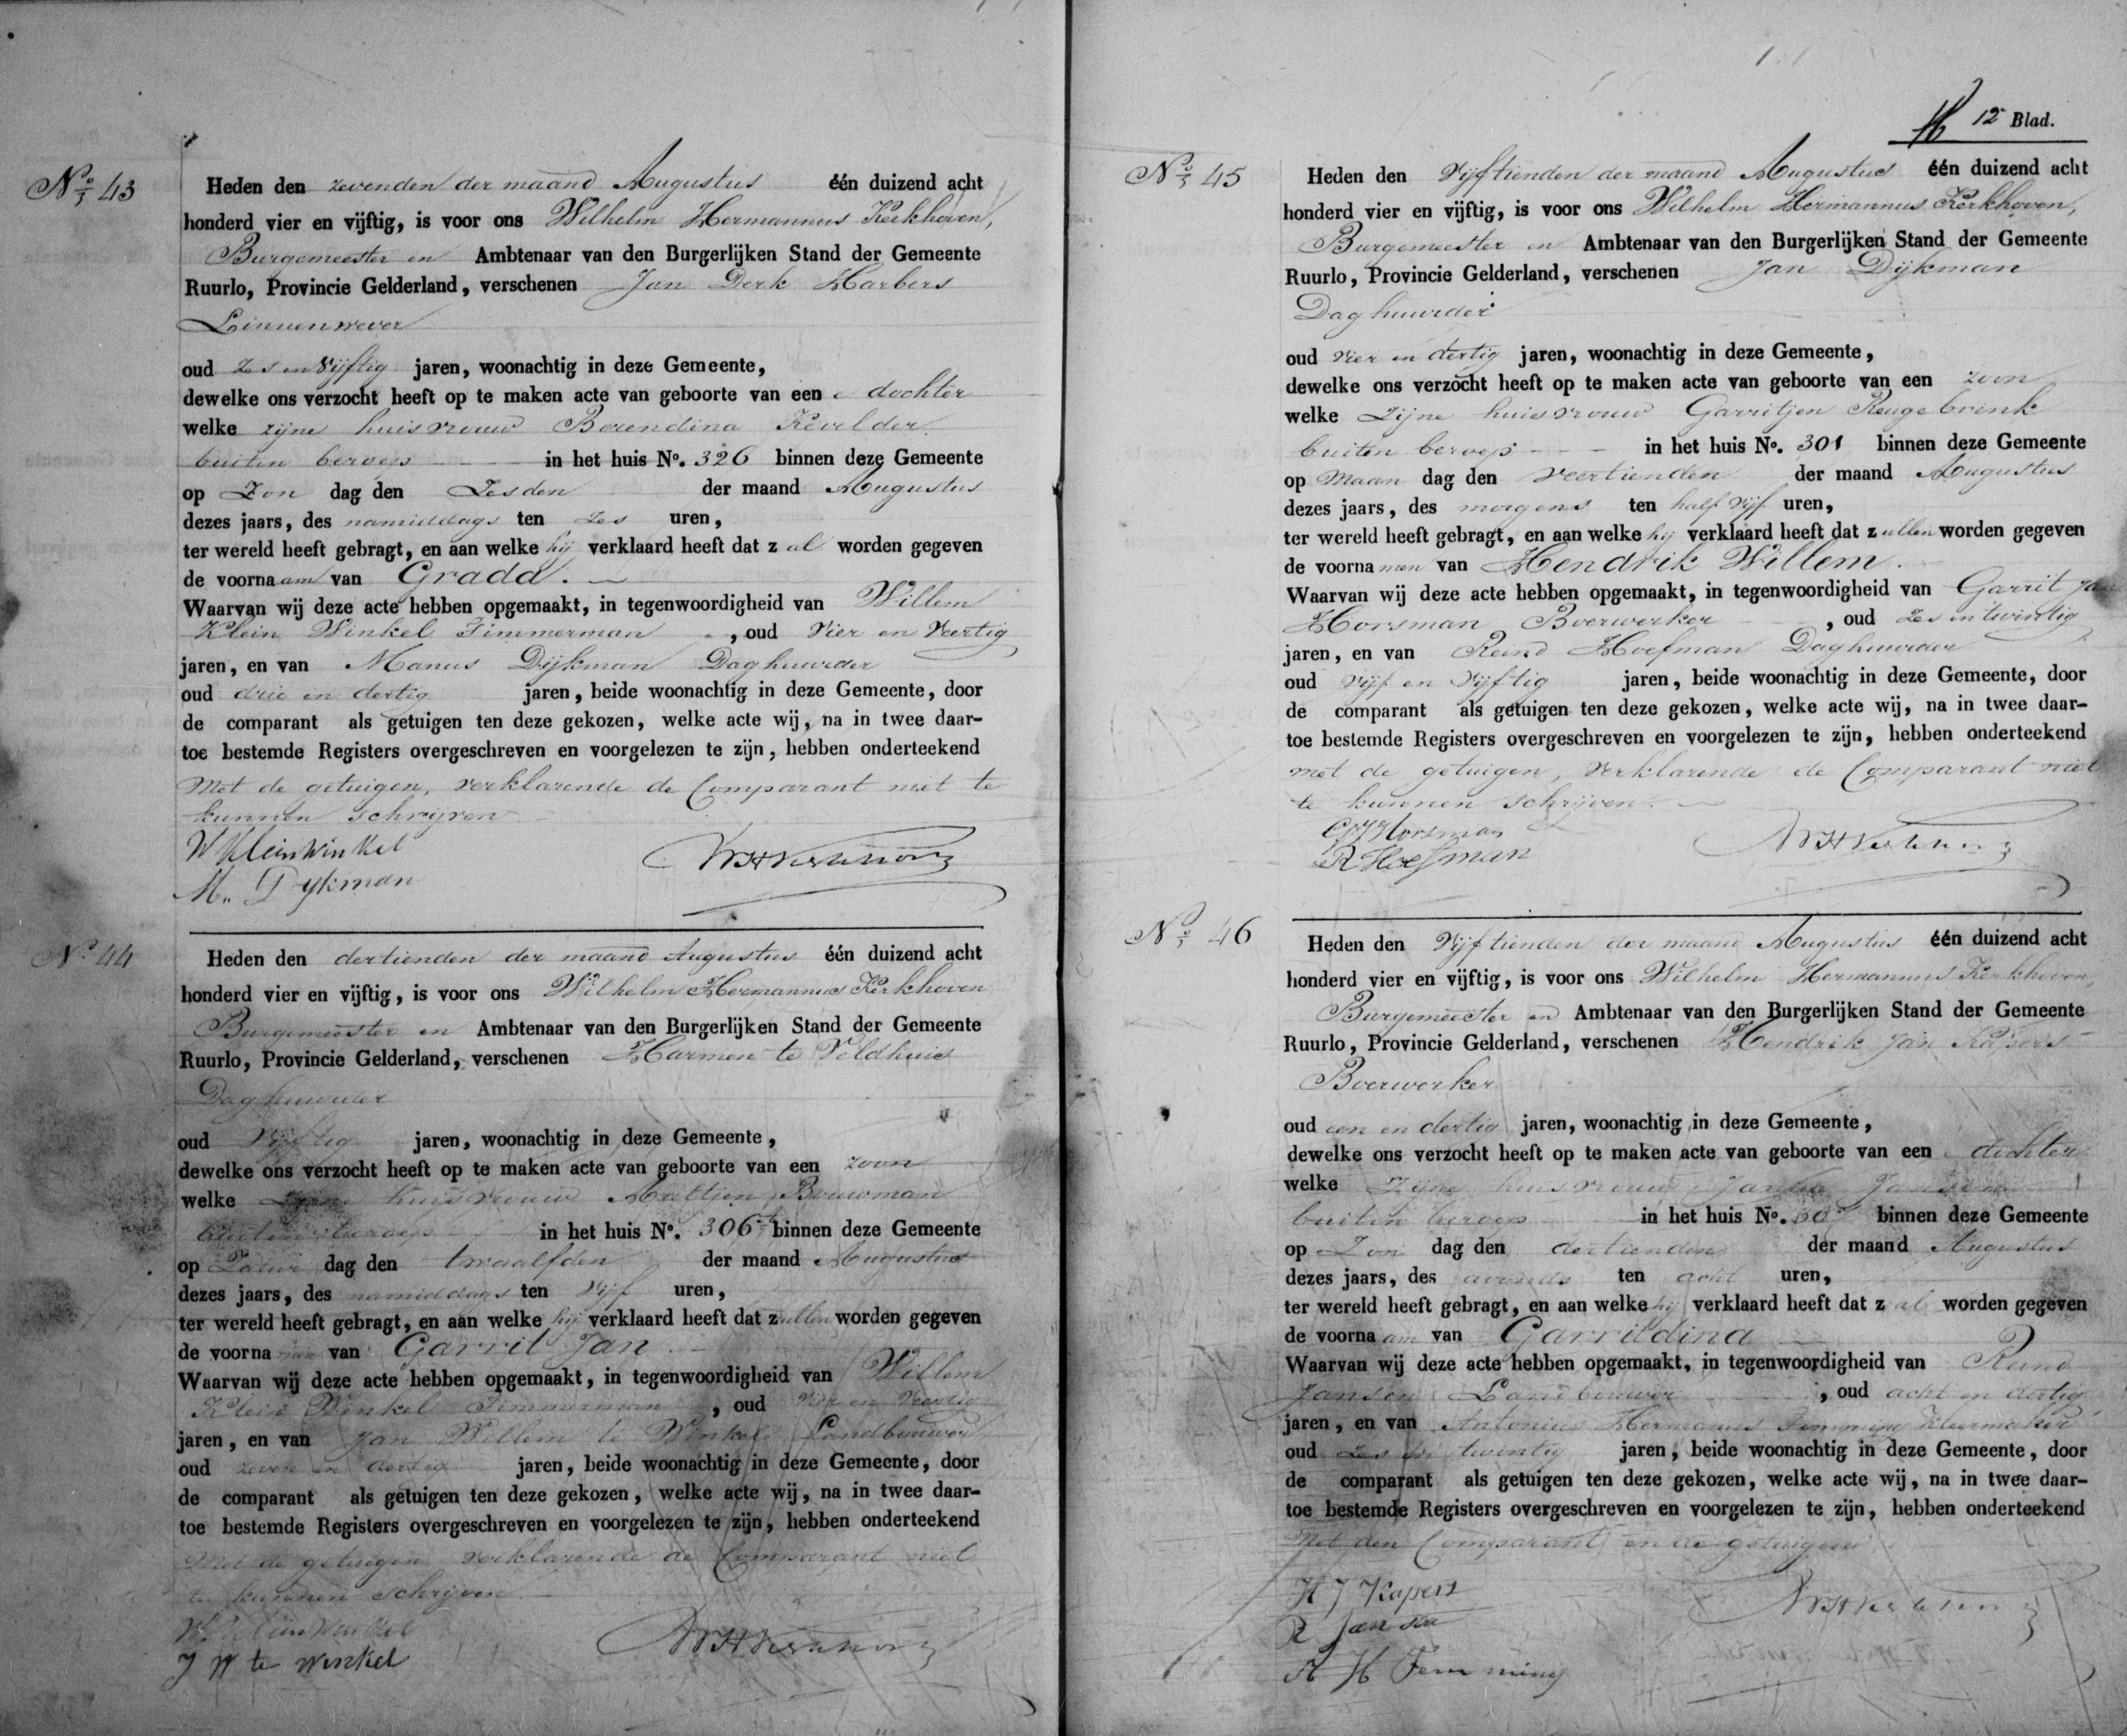 No 43
Heden den zevenden der maand Augustus één duizend acht
honderd vier en vijftig, is voor ons Wilhelm Hermannus Kerkhoven,
Burgemeester en Ambtenaar van den Burgerlijken Stand der Gemeente
Ruurlo, Provincie Gelderland, verschenen Jan Derk Harbers
Linnenwever
oud zes en vijftig jaren, woonachtig in deze Gemeente,
dewelke ons verzocht heeft op te maken acte van geboorte van een e dochter
welke zijne huisvrouw Berendina Kevelder
buiten beroep in het huis No. 326 binnen deze Gemeente
op Zon dag den Zesden der maand Augustus
dezes jaars, des namiddags ten zes uren,
ter wereld heeft gebragt, en aan welke hij verklaard heeft dat z al worden gegeven
de voorna am van Grada.
Waarvan wij deze acte hebben opgemaakt, in tegenwoordigheid van Willem
Klein Winkel Timmerman , oud Vier en Veertig
jaren, en van Manus Dijkman Daghuurder
oud drie en dertig jaren, beide woonachtig in deze Gemeente, door
de comparant als getuigen ten deze gekozen, welke acte wij, na in twee daar-
toe bestemde Registers overgeschreven en voorgelezen te zijn, hebben onderteekend
Met de getuigen, verklarende de Comparant niet te
kunnen schrijven
W Kleinwinkel
WHKerkhoven
M. Dykman
No 44
Heden den dertienden der maand Augustus één duizend acht
honderd vier en vijftig, is voor ons Wilhelm Hermannus Kerkhoven
Burgemeester en Ambtenaar van den Burgerlijken Stand der Gemeente
Ruurlo, Provincie Gelderland, verschenen Harmen te Veldhuis
Daghuurder
oud Vijftig jaren, woonachtig in deze Gemeente,
dewelke ons verzocht heeft op te maken acte van geboorte van een zoon
welke zijne huisvrouw Aaltjen Bouwman
buiten beroep in het huis No. 306 binnen deze Gemeente
op Zatur dag den twaalfden der maand Augustus
dezes jaars, des namiddags ten vijf uren,
ter wereld heeft gebragt, en aan welke hij verklaard heeft dat z ullen worden gegeven
de voorna men van Garrit Jan
Waarvan wij deze acte hebben opgemaakt, in tegenwoordigheid van Willem
Klein Winkel Timmerman , oud Vier en Veertig
jaren, en van Jan Willem te Winkel Landbouwer
oud zeven en dertig jaren, beide woonachtig in deze Gemeente, door
de comparant als getuigen ten deze gekozen, welke acte wij, na in twee daar-
toe bestemde Registers overgeschreven en voorgelezen te zijn, hebben onderteekend
Met de getuigen verklarende de Comparant niet
te kunnen schrijven
W Kleinwinkel
WHKerkhoven
J W te Winkel
12 Blad.
No 45
Heden den Vijftienden der maand Augustus één duizend acht
honderd vier en vijftig, is voor ons Wilhelm Hermannus Kerkhoven,
Burgemeester en Ambtenaar van den Burgerlijken Stand der Gemeente
Ruurlo, Provincie Gelderland, verschenen Jan Dijkman
Daghuurder
oud vier en dertig jaren, woonachtig in deze Gemeente,
dewelke ons verzocht heeft op te maken acte van geboorte van een zoon
welke Zijne huisvrouw Garritjen Reugebrink
buiten beroep in het huis No. 301 binnen deze Gemeente
op Maan dag den veertienden der maand Augustus
dezes jaars, des morgens ten half vijf uren,
ter wereld heeft gebragt, en aan welke hij verklaard heeft dat z ullen worden gegeven
de voorna men van Hendrik Willem.
Waarvan wij deze acte hebben opgemaakt, in tegenwoordigheid van Garrit Jan
Horsman Boerwerker , oud zes en twintig
jaren, en van Reind Hoefman Daghuurder
oud vijf en vijftig jaren, beide woonachtig in deze Gemeente, door
de comparant als getuigen ten deze gekozen, welke acte wij, na in twee daar-
toe bestemde Registers overgeschreven en voorgelezen te zijn, hebben onderteekend
met de getuigen, verklarende de Comparant niet
te kunnen schrijven.
GJHorsman
WHKerkhoven
R Hoefman
No 46
Heden den Vijftienden der maand Augustus één duizend acht
honderd vier en vijftig, is voor ons Wilhelm Hermannus Kerkhoven,
Burgemeester en Ambtenaar van den Burgerlijken Stand der Gemeente
Ruurlo, Provincie Gelderland, verschenen Hendrik Jan Kapers
Boerwerker
oud een en dertig jaren, woonachtig in deze Gemeente,
dewelke ons verzocht heeft op te maken acte van geboorte van een e dochter
welke Zijne huisvrouw Jansen
buiten beroep in het huis No. binnen deze Gemeente
op Zon dag den dertienden der maand Augustus
dezes jaars, des avonds ten acht uren,
ter wereld heeft gebragt, en aan welke hij verklaard heeft dat z al worden gegeven
de voorna am van Garritdina
Waarvan wij deze acte hebben opgemaakt, in tegenwoordigheid van Reind
Jansen Landbouwer , oud acht en dertig
jaren, en van Antonius Hermanus Femming Kleermaker
oud zes en twintig jaren, beide woonachtig in deze Gemeente, door
de comparant als getuigen ten deze gekozen, welke acte wij, na in twee daar-
toe bestemde Registers overgeschreven en voorgelezen te zijn, hebben onderteekend
Met den Comparant en de getuigen
H J Kapers
WHKerkhoven
R Jansen
A H Femming